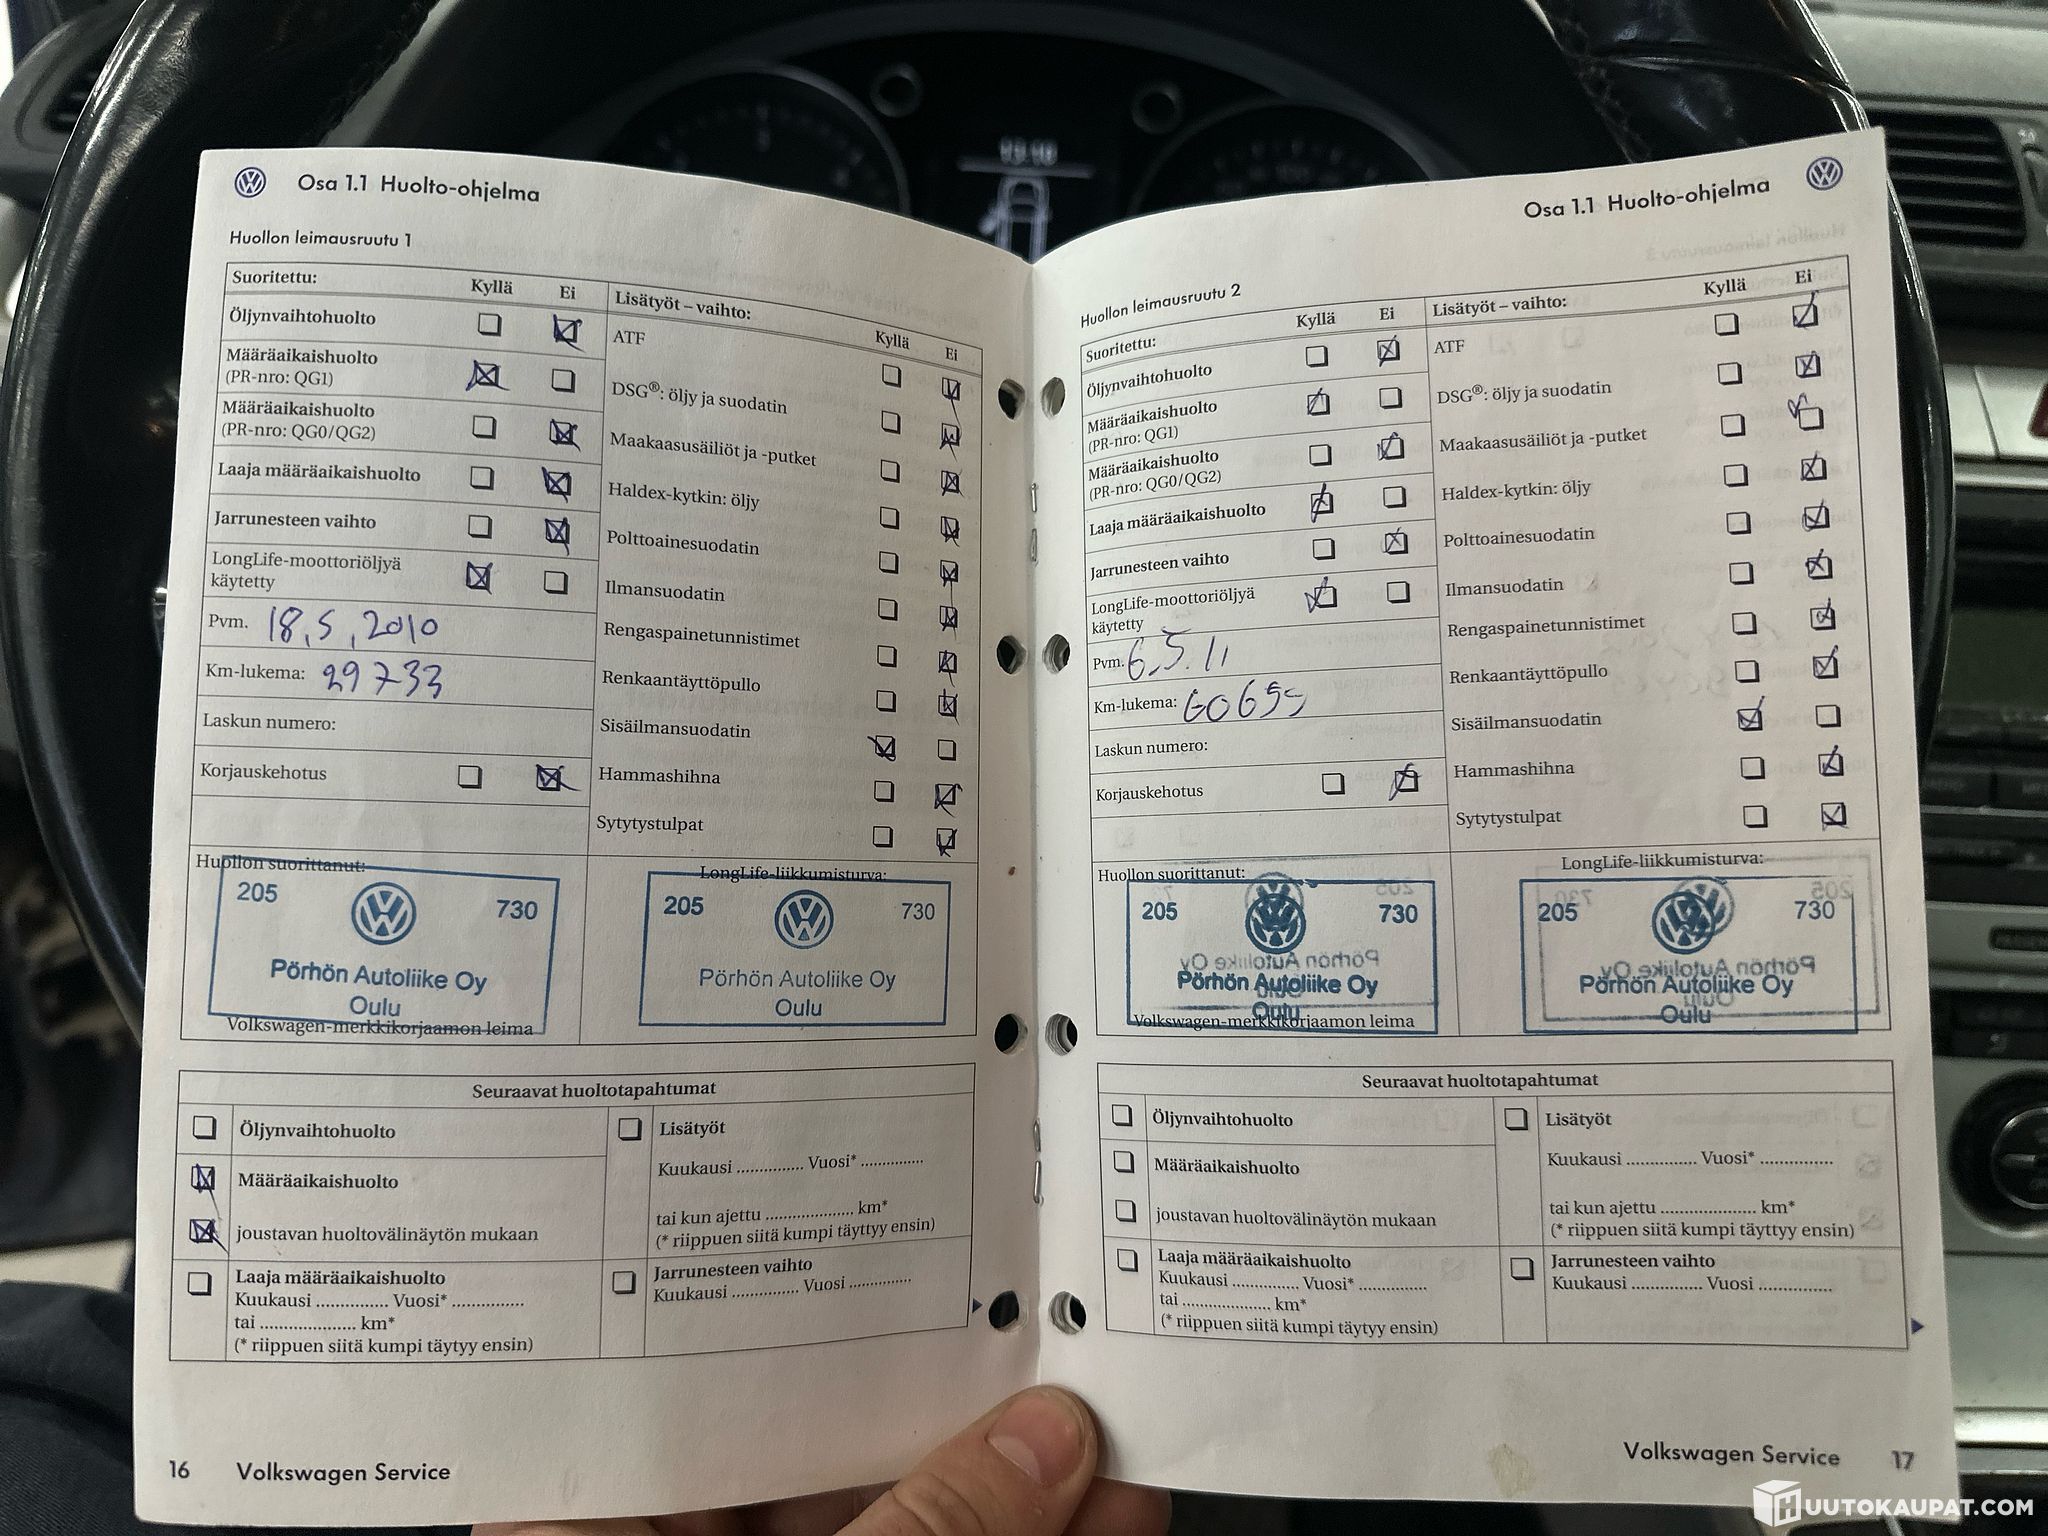 13:10
Osa 1.1 Huolto-ohjelma
Huollon leimausruutu 1
Suoritettu:
Kyllä
Ei
Öljynvaihtohuolto
Määräaikaishuolto
(PR-nro: QG1)
Määräaikaishuolto
(PR-nro: QG0/QG2)
Laaja määräaikaishuolto
Jarrunesteen vaihto
LongLife-moottoriöljyä
käytetty
Pvm. 18.5.2010
Km-lukema: 29733
Laskun numero:
Korjauskehotus
Lisätyöt – vaihto:
Kyllä
Ei
ATF
DSG®: öljy ja suodatin
Maakaasusäiliöt ja -putket
Haldex-kytkin: öljy
Polttoainesuodatin
Ilmansuodatin
Rengaspainetunnistimet
Renkaantäyttöpullo
Sisäilmansuodatin
Hammashihna
Sytytystulpat
Huollon suorittanut:
205
730
Pörhön Autoliike Oy
Oulu
Volkswagen-merkkikorjaamon leima
LongLife-liikkumisturva:
205
730
Pörhön Autoliike Oy
Oulu
Seuraavat huoltotapahtumat
Öljynvaihtohuolto
Määräaikaishuolto
joustavan huoltovälinäytön mukaan
Laaja määräaikaishuolto
Kuukausi ............... Vuosi* ...............
tai .................... km*
(* riippuen siitä kumpi täytyy ensin)
Lisätyöt
Kuukausi .............. Vuosi* .............
tai kun ajettu .................... km*
(* riippuen siitä kumpi täyttyy ensin)
Jarrunesteen vaihto
Kuukausi .............. Vuosi .............
16 Volkswagen Service
Osa 1.1 Huolto-ohjelma
Huollon leimausruutu 2
Suoritettu:
Kyllä
Ei
Öljynvaihtohuolto
Määräaikaishuolto
(PR-nro: QG1)
Määräaikaishuolto
(PR-nro: QG0/QG2)
Laaja määräaikaishuolto
Jarrunesteen vaihto
LongLife-moottoriöljyä
käytetty
Pvm. 6.5.11
Km-lukema:
Laskun numero:
Korjauskehotus
Lisätyöt – vaihto:
Kyllä
Ei
ATF
DSG®: öljy ja suodatin
Maakaasusäiliöt ja -putket
Haldex-kytkin: öljy
Polttoainesuodatin
Ilmansuodatin
Rengaspainetunnistimet
Renkaantäyttöpullo
Sisäilmansuodatin
Hammashihna
Sytytystulpat
Huollon suorittanut:
205
730
Pörhön Autoliike Oy
Oulu
Volkswagen-merkkikorjaamon leima
LongLife-liikkumisturva:
205
730
Pörhön Autoliike Oy
Oulu
Seuraavat huoltotapahtumat
Öljynvaihtohuolto
Määräaikaishuolto
joustavan huoltovälinäytön mukaan
Laaja määräaikaishuolto
Kuukausi .............. Vuosi* ..............
tai .................... km*
(* riippuen siitä kumpi täytyy ensin)
Lisätyöt
Kuukausi .............. Vuosi* ...............
tai kun ajettu .................... km*
(* riippuen siitä kumpi täyttyy ensin)
Jarrunesteen vaihto
Kuukausi .............. Vuosi ...............
Volkswagen Service 17
HUUTOKAUPAT.COM